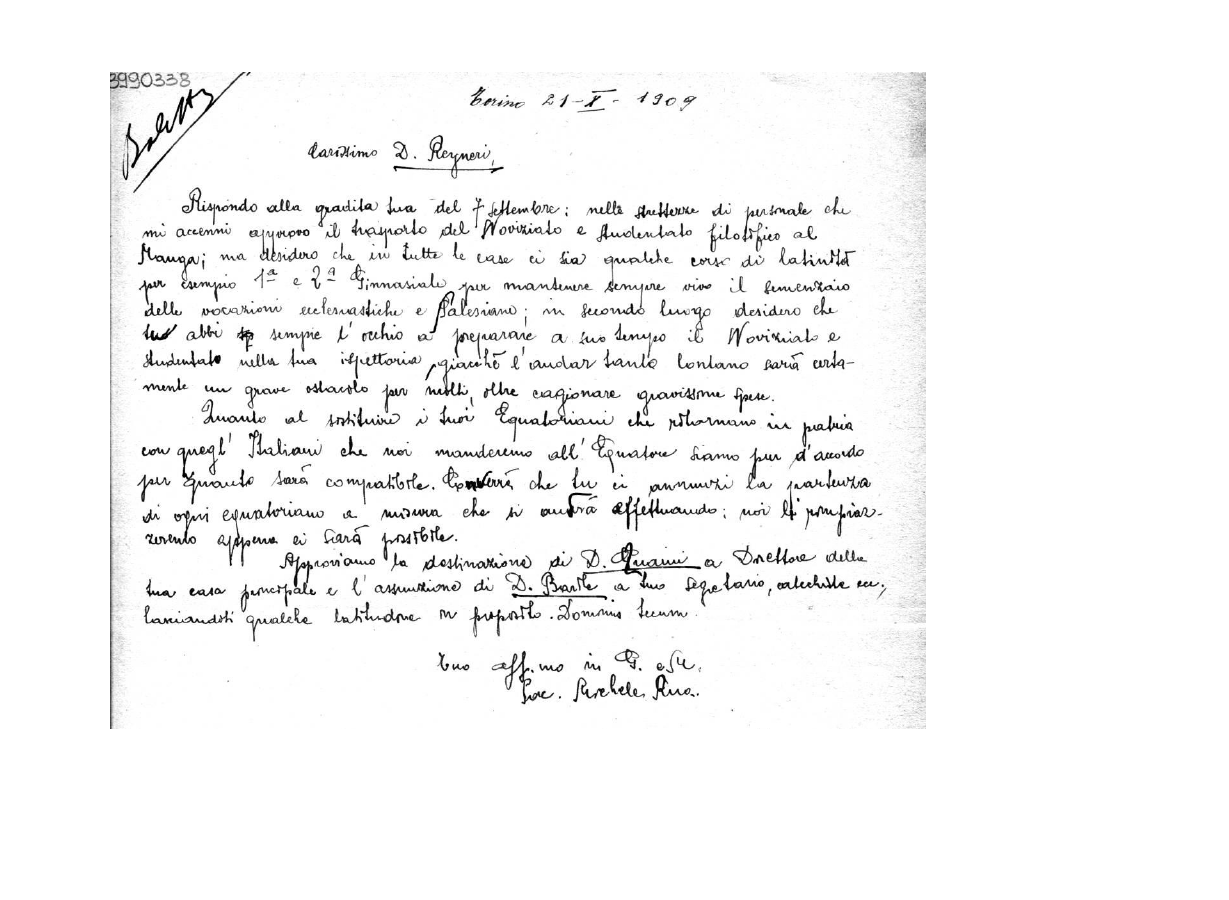 3990338
Torino 21-X-1909
Carissimo D. Reyneri,
Rispondo alla gradita tua del 7 settembre: nelle strettezze di personale che
mi accenni approvo il trasporto del Noviziato e studentato filosofico al
Manga; ma desidero che in tutte le case ci sia qualche corso di latinità
per esempio 1ª e 2ª Ginnasiale per mantenere sempre vivo il semenzaio
delle vocazioni ecclesiastiche e Salesiane; in secondo luogo desidero che
tu abbi sempre l'occhio a preparare a suo tempo il Noviziato e
studentato nella tua ispettoria, giacchè l'andar tanto lontano sarà certa-
mente un grave ostacolo per molti, oltre cagionare gravissime spese.
Quanto al sostituire i tuoi Equatoriani che ritornano in patria
con quegl' Italiani che noi manderemo all' Equatore siamo pur d'accordo
per quanto sarà compatibile. Converrà che tu ci annunzi la partenza
di ogni equatoriano a misura che si andrà effettuando; noi li rimpiaz-
zeremo appena ci sarà possibile.
Approviamo la destinazione di D. a Direttore della
tua casa principale e l'assunzione di D. a tuo segretario, catechista ec;
lasciandoti qualche latitudine in proposito. Dominus tecum.
Tuo aff.mo in G. e M.
Sac. Michele Rua.